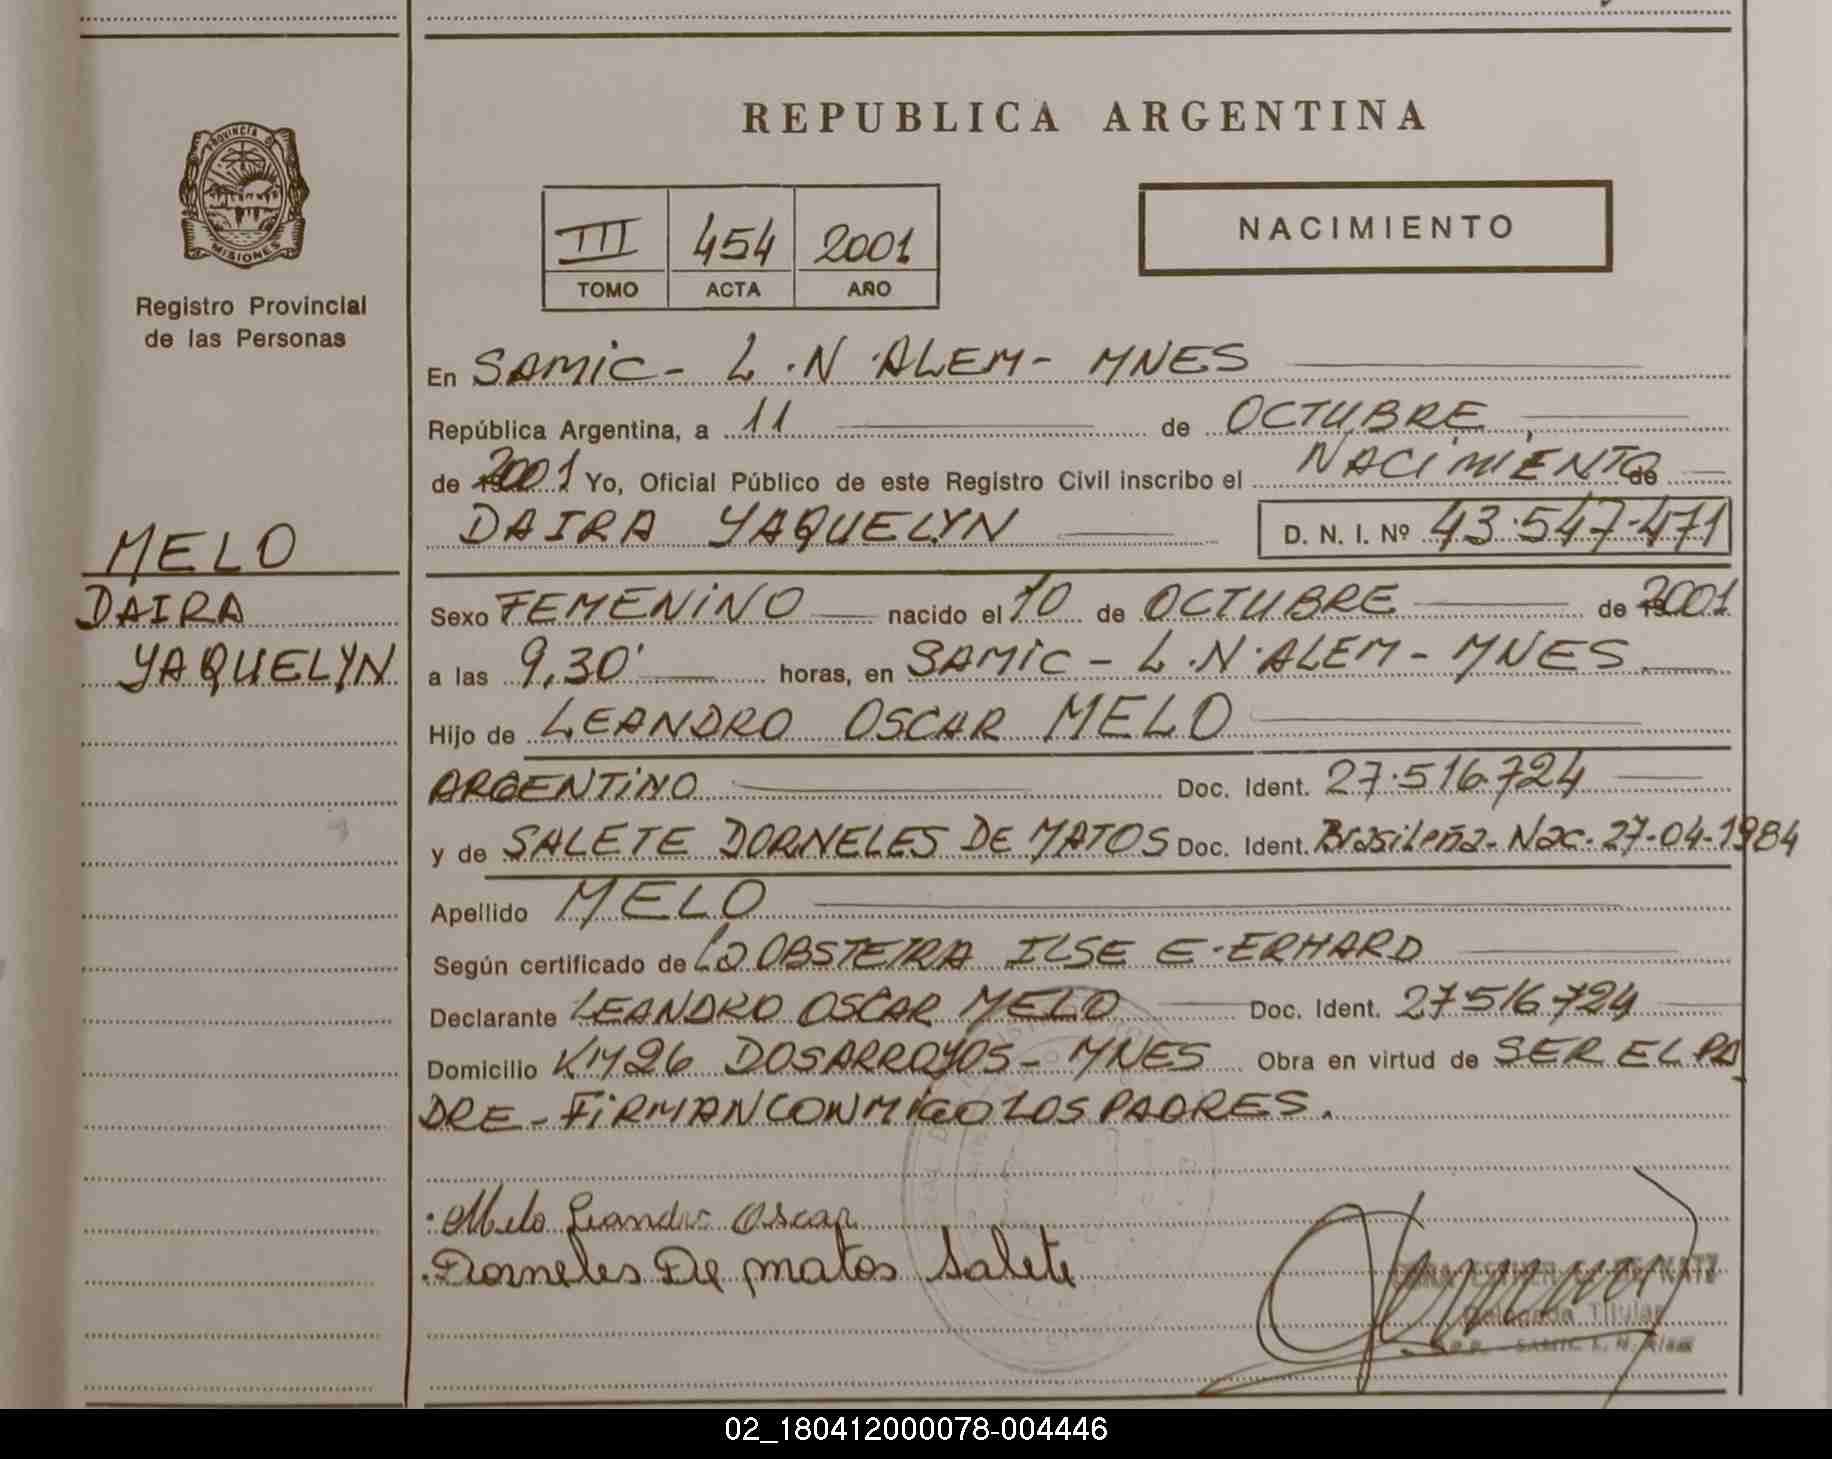 REPUBLICA ARGENTINA
PROVINCIA DE
MISIONES
Registro Provincial
de las Personas
III 454 2001
TOMO ACTA AÑO
NACIMIENTO
En SAMIC - L.N. ALEM - MNES
República Argentina, a 11 de OCTUBRE
de 2001 Yo, Oficial Público de este Registro Civil inscribo el NACIMIENTO de
DAIRA YAQUELYN D. N. I. Nº 43.547.471
MELO
DAIRA
YAQUELYN
Sexo FEMENINO nacido el 10 de OCTUBRE de 2001
a las 9,30' horas, en SAMIC - L.N. ALEM - MNES
Hijo de LEANDRO OSCAR MELO
ARGENTINO Doc. Ident. 27.516.724
y de SALETE DORNELES DE MATOS Doc. Ident. Brasileña - Nac. 27-04-1984
Apellido MELO
Según certificado de La OBSTETRA ILSE E. ERHARD
Declarante LEANDRO OSCAR MELO Doc. Ident. 27516724
Domicilio KM 26 DOS ARROYOS - MNES Obra en virtud de SER EL PA
DRE - FIRMAN CONMIGO LOS PADRES.
Melo Leandro Oscar
Dorneles De matos Salete
Delegada Titular
SAMIC L. N. Alem
02_180412000078-004446